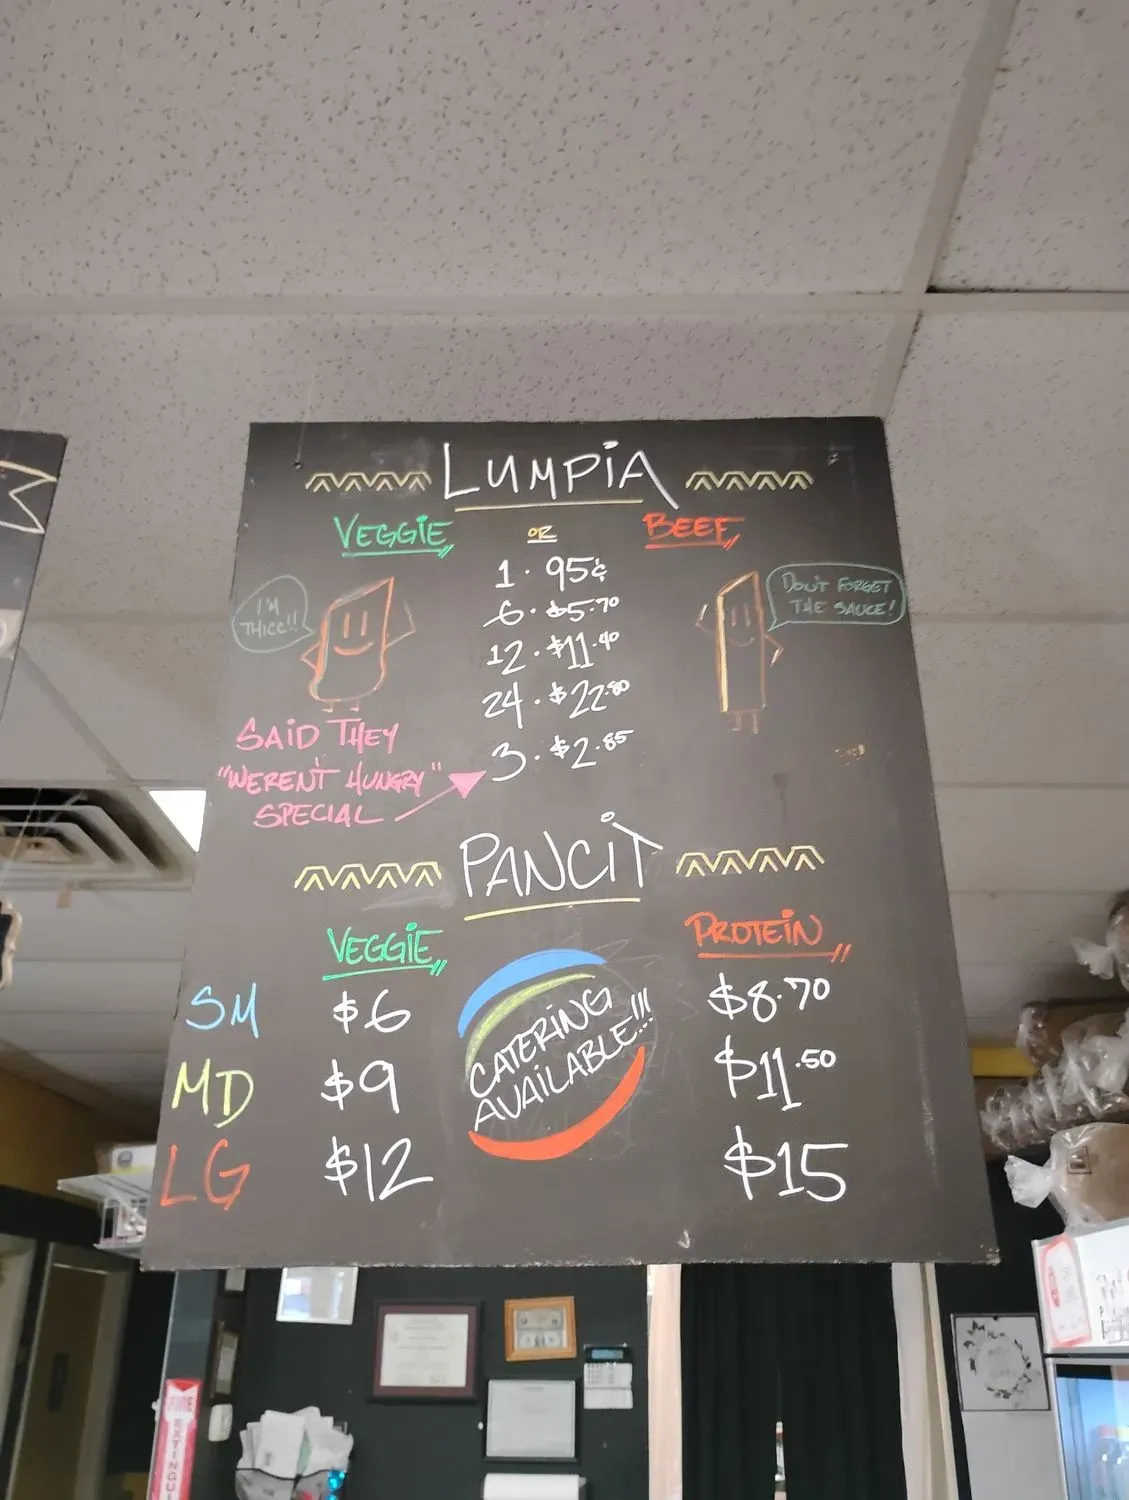 LUMPIA
VEGGIE OR BEEF
I'M
THICC!!
DON'T FORGET
THE SAUCE!
1 · 95¢
6 · $5.70
12 · $11.40
24 · $22.80
3 · $2.85
SAID THEY
"WEREN'T HUNGRY"
SPECIAL
PANCIT
VEGGIE PROTEIN
SM $6 $8.70
MD $9 $11.50
LG $12 $15
CATERING
AVAILABLE!!!
FIRE